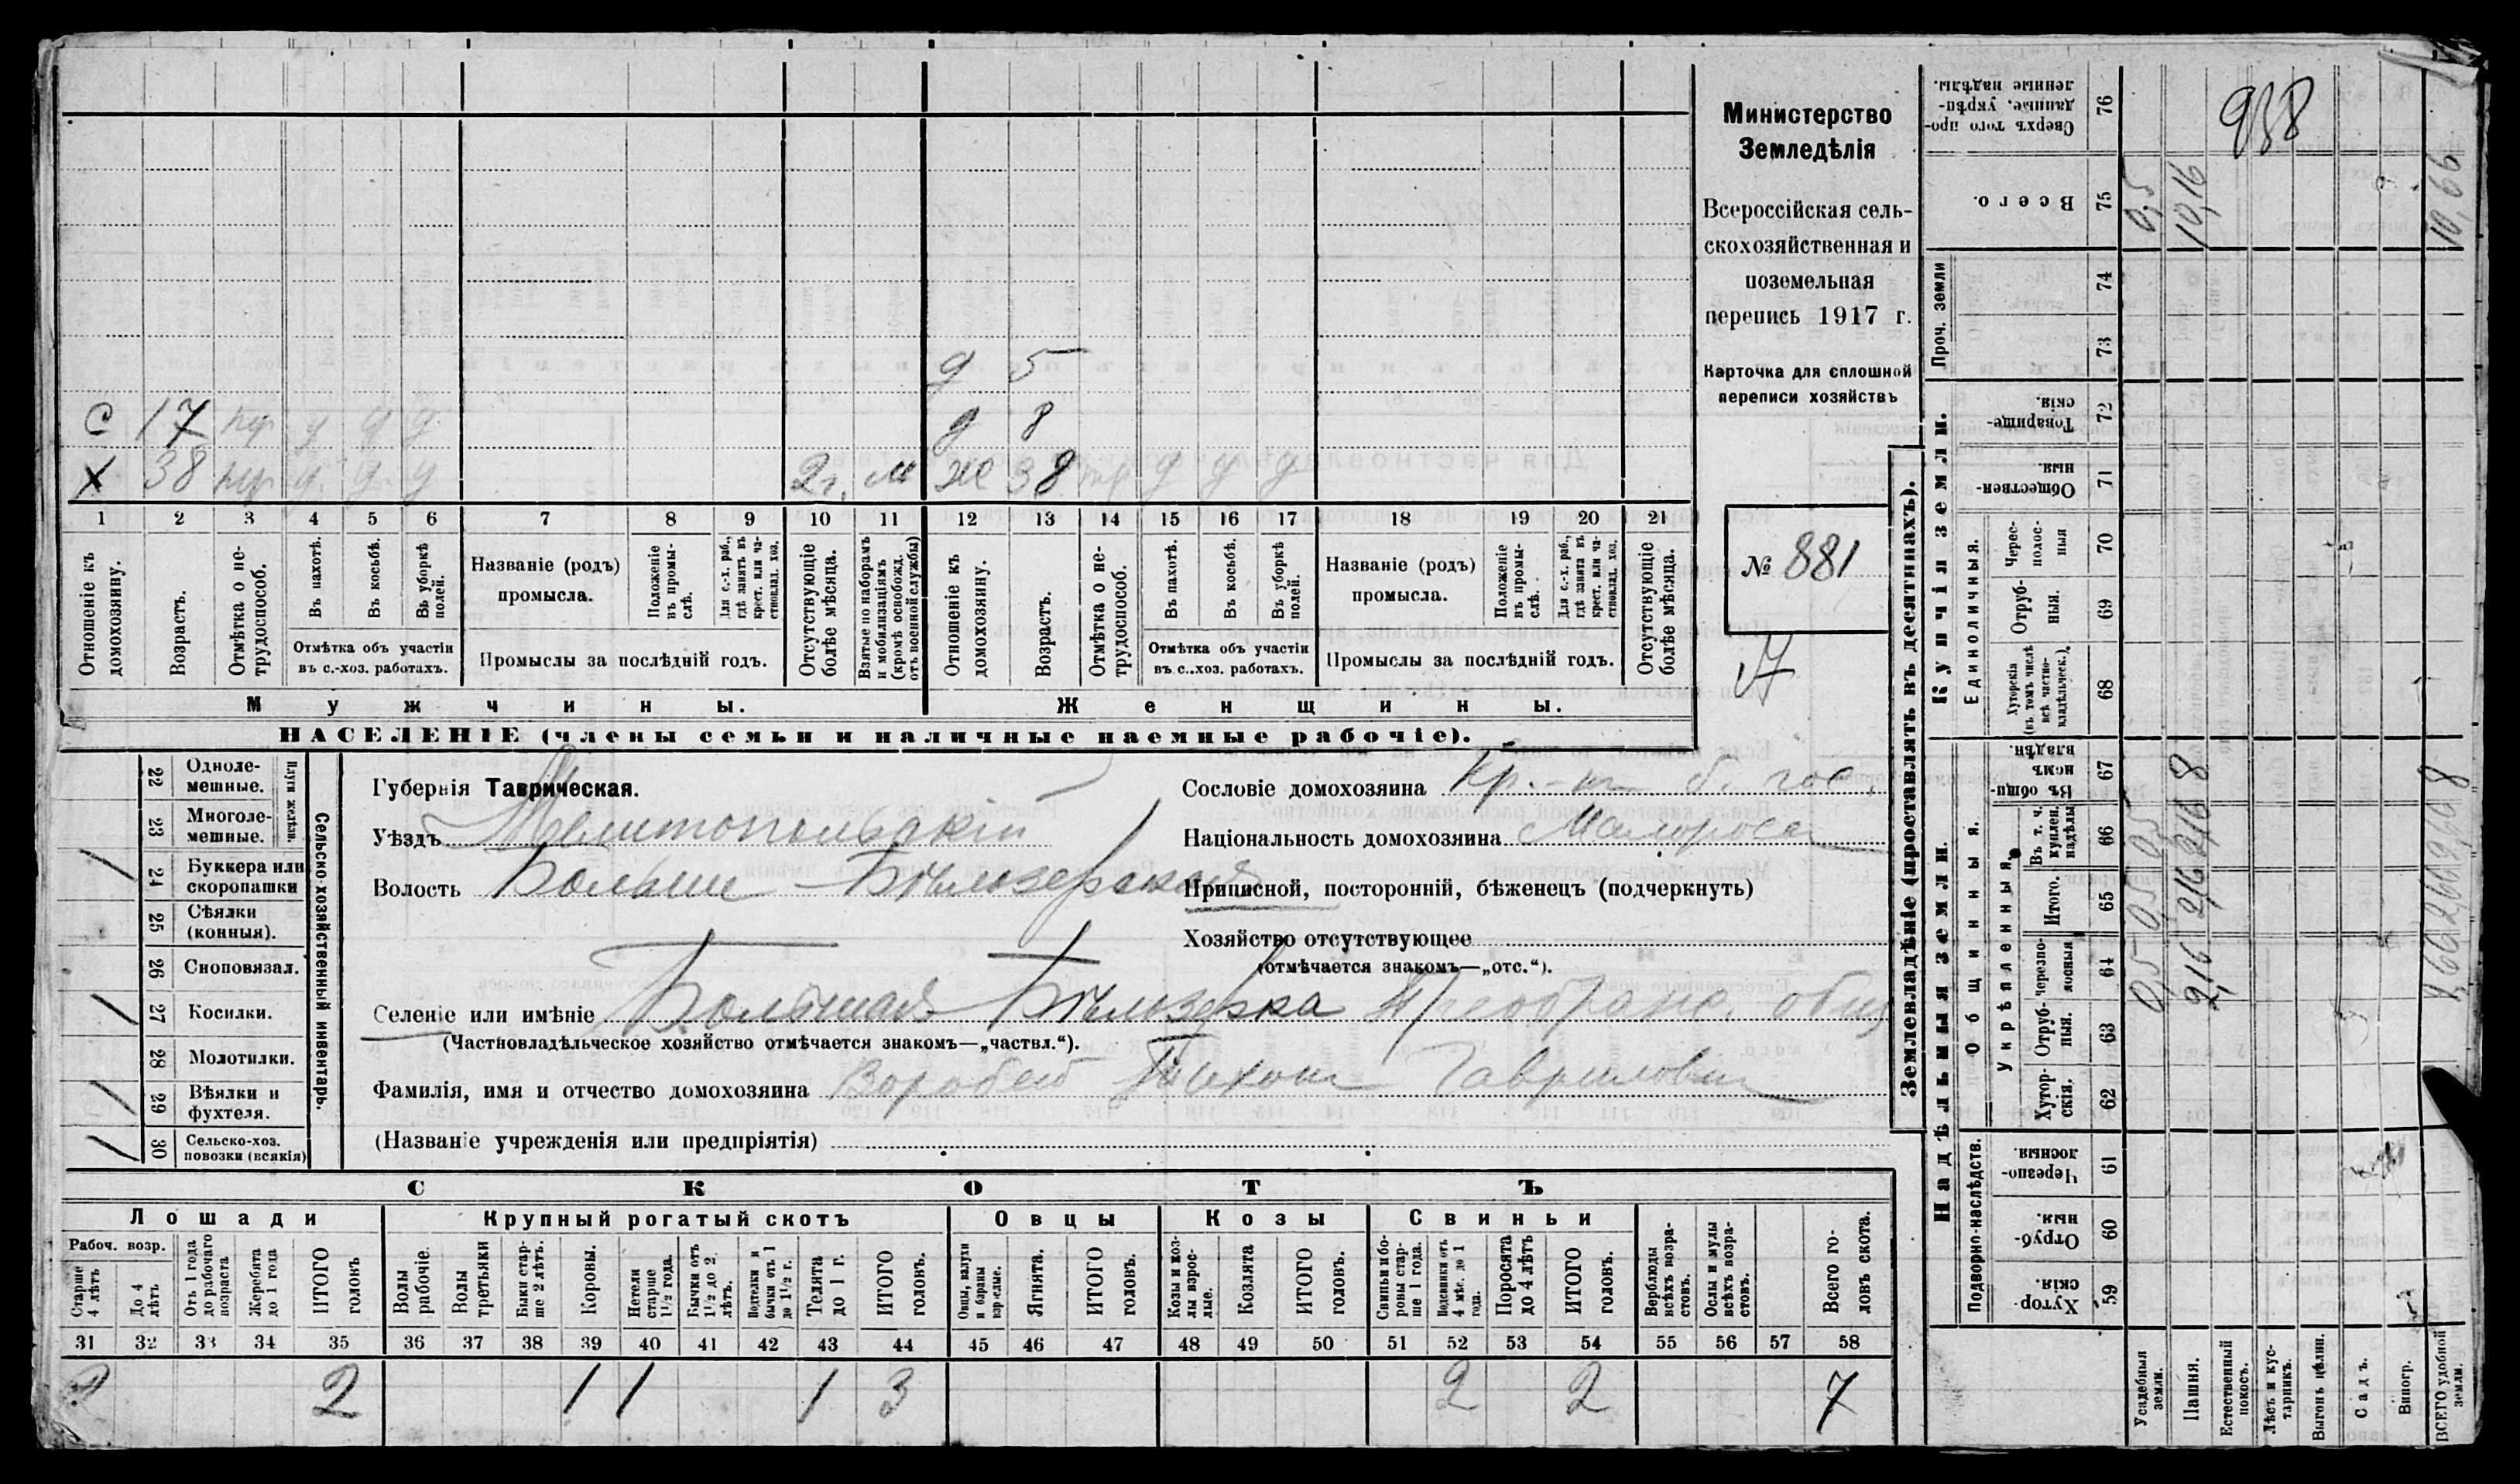 Министерство
Земледѣлія
Всероссійская сель-
скохозяйственная и
поземельная
перепись 1917 г.
Карточка для сплошной
переписи хозяйствъ
№ 881
17
д 5
С 17 пр д д д
д 8
X 38 пр д д д 2 г. м ж 38 пр д д д
1 2 3 4 5 6 7 8 9 10 11 12 13 14 15 16 17 18 19 20 21
Отношеніе къ домохозяину.
Возрастъ.
Отмѣтка о не-трудоспособ.
Въ пахотѣ.
Въ косьбѣ.
Въ уборкѣ полей.
Отмѣтка объ участіи
въ с.-хоз. работахъ.
Названіе (родъ)
промысла.
Положеніе въ промы-слѣ.
Для с.-х. раб., гдѣ занятъ въ крест. или ча-стновлад. хоз.
Промыслы за послѣдній годъ.
Отсутствующіе болѣе мѣсяца.
Взятые по наборамъ и мобилизаціямъ (кромѣ освобожд. отъ военной службы)
Отношеніе къ домохозяину.
Возрастъ.
Отмѣтка о не-трудоспособ.
Въ пахотѣ.
Въ косьбѣ.
Въ уборкѣ полей.
Отмѣтка объ участіи
въ с.-хоз. работахъ.
Названіе (родъ)
промысла.
Положеніе въ промы-слѣ.
Для с.-х. раб., гдѣ занята въ крест. или ча-стновлад. хоз.
Промыслы за послѣдній годъ.
Отсутствующіе болѣе мѣсяца.
Мужчины.
Женщины.
НАСЕЛЕНІЕ (члены семьи и наличные наемные рабочіе).
Сельско-хозяйственный инвентарь.
Плуги желѣзн.
22 Одноле-мешные.
23 Многоле-мешные.
/ 24 Буккера или скоропашки
25 Сѣялки (конныя).
26 Сноповязал.
/ 27 Косилки.
28 Молотилки.
/ 29 Вѣялки и фухтеля.
/ 30 Сельско-хоз. повозки (всякія)
Губернія Таврическая.
Уѣздъ Мелитопольскій
Волость Больше-Бѣлозерская
Сословіе домохозяина Кр.-н б. гос.
Національность домохозяина Малоросс
Приписной, посторонній, бѣженецъ (подчеркнуть)
Хозяйство отсутствующее
(отмѣчается знакомъ—„отс.“).
Селеніе или имѣніе Большая Бѣлозерка Преображ. общ
(Частновладѣльческое хозяйство отмѣчается знакомъ—„частвл.“).
Фамилія, имя и отчество домохозяина Воробей Тихон Гаврилович
(Названіе учрежденія или предпріятія)
СКОТЪ
Лошади
Крупный рогатый скотъ
Овцы
Козы
Свиньи
Рабоч. возр.
Старше 4 лѣтъ
До 4 лѣтъ
Отъ 1 года до рабочаго возраста
Жеребята до 1 года
ИТОГО головъ
Волы рабочіе.
Волы третьяки
Быки стар-ше 2 лѣтъ.
Коровы.
Нетели старше 1½ года.
Бычки отъ 1½ до 2 лѣтъ.
Подтелки и бычки отъ 1 до 1½ г.
Телята до 1 г.
ИТОГО головъ.
Овцы, валухи и бараны взрослые.
Ягнята.
ИТОГО головъ.
Козы и коз-лы взрос-лые.
Козлята
ИТОГО головъ.
Свиньи и бо-ровы стар-ше 1 года.
Подсвинки отъ 4 мѣс. до 1 года.
Поросята до 4 лѣтъ
ИТОГО головъ.
Верблюды всѣхъ возра-стовъ.
Ослы и мулы всѣхъ возра-стовъ.
Всего го-ловъ скота.
31 32 33 34 35 36 37 38 39 40 41 42 43 44 45 46 47 48 49 50 51 52 53 54 55 56 57 58
2 2 1 1 1 3 2 2 7
Землевладѣніе (проставлять въ десятинахъ).
Надѣльныя земли.
Купчія земли.
Проч. земли
Подворно-наслѣдств.
Общинныя.
Укрѣпленныя.
Единоличныя.
Хутор-скія. 59
Отруб-ныя. 60
Черезпо-лосныя. 61
Хутор-скія. 62
Отруб-ныя. 63
Черезпо-лосныя 64
Итого. 65
Въ т. ч. куплен. надѣлы 66
Въ общи-номъ владѣн. 67
Хуторскія (въ томъ числѣ всѣ частно-владѣльческ.). 68
Отруб-ныя. 69
Черес-полос-ныя 70
Обществен-ныя. 71
Товарище-скія. 72
73
74
Всего. 75
Сверхъ того про-данные, укрѣп-ленные надѣлы. 76
Усадебныя земли. 0,5 0,5 0,5 0,5
Пашня. 2,16 2,16 2,16 8 10,16
Естественный покосъ.
Лѣсъ и кус-тарникъ.
Выгонъ цѣлин.
Садъ.
Виногр.
ВСЕГО удобной земли. 2,66 2,66 2,66 8 10,66
988